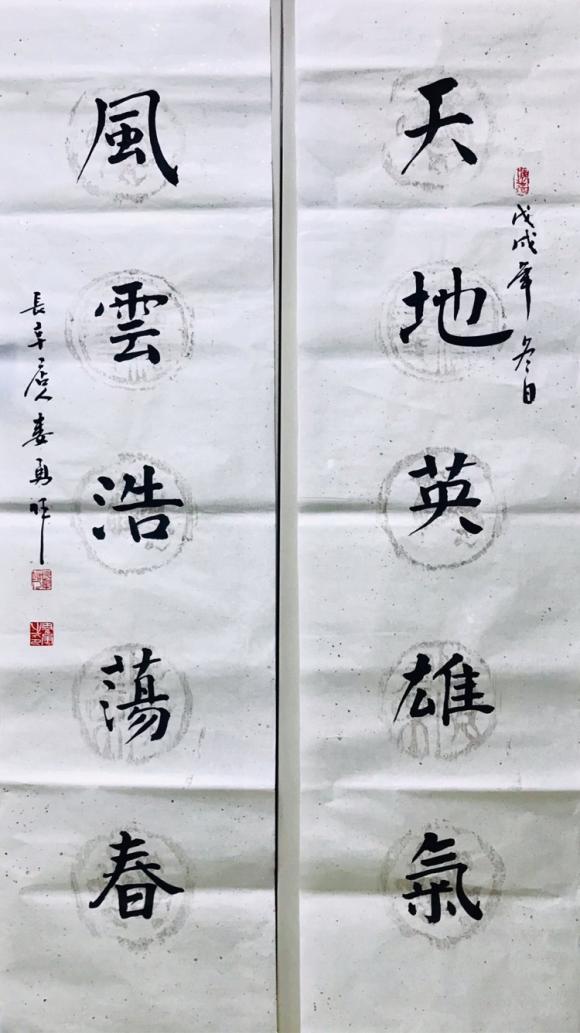 天地英雄氣
戊戌年冬日
風雲浩蕩春
長辛 婁勇旺